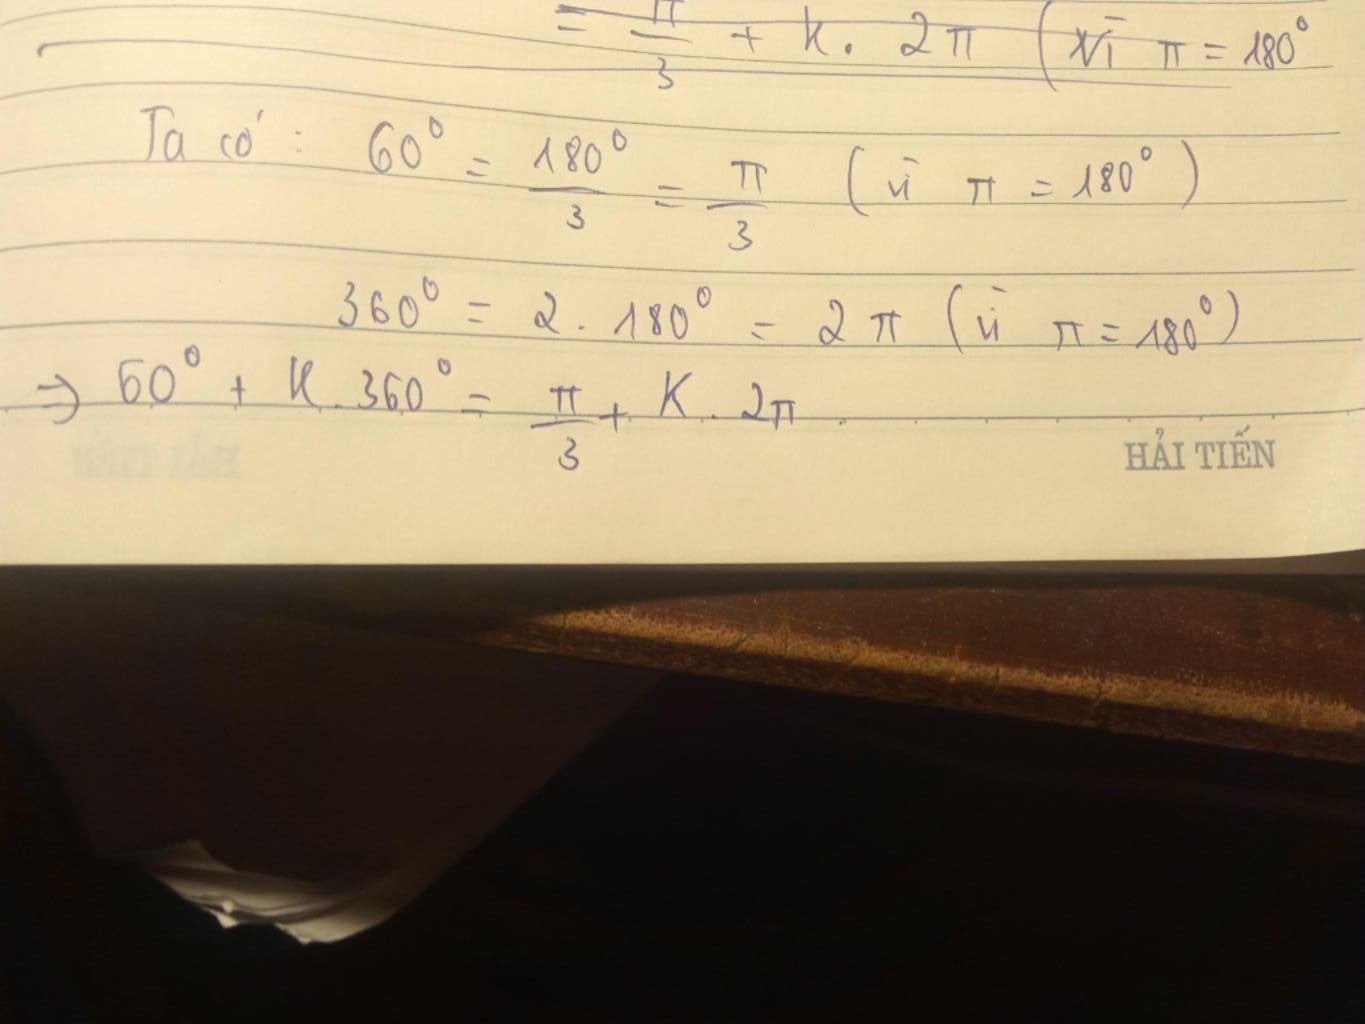 = π/3 + k. 2π (Vì π = 180°
Ta có: 60° = 180°/3 = π/3 (vì π = 180°)
360° = 2. 180° = 2π (vì π = 180°)
⇒ 60° + K. 360° = π/3 + K. 2π
HẢI TIẾN